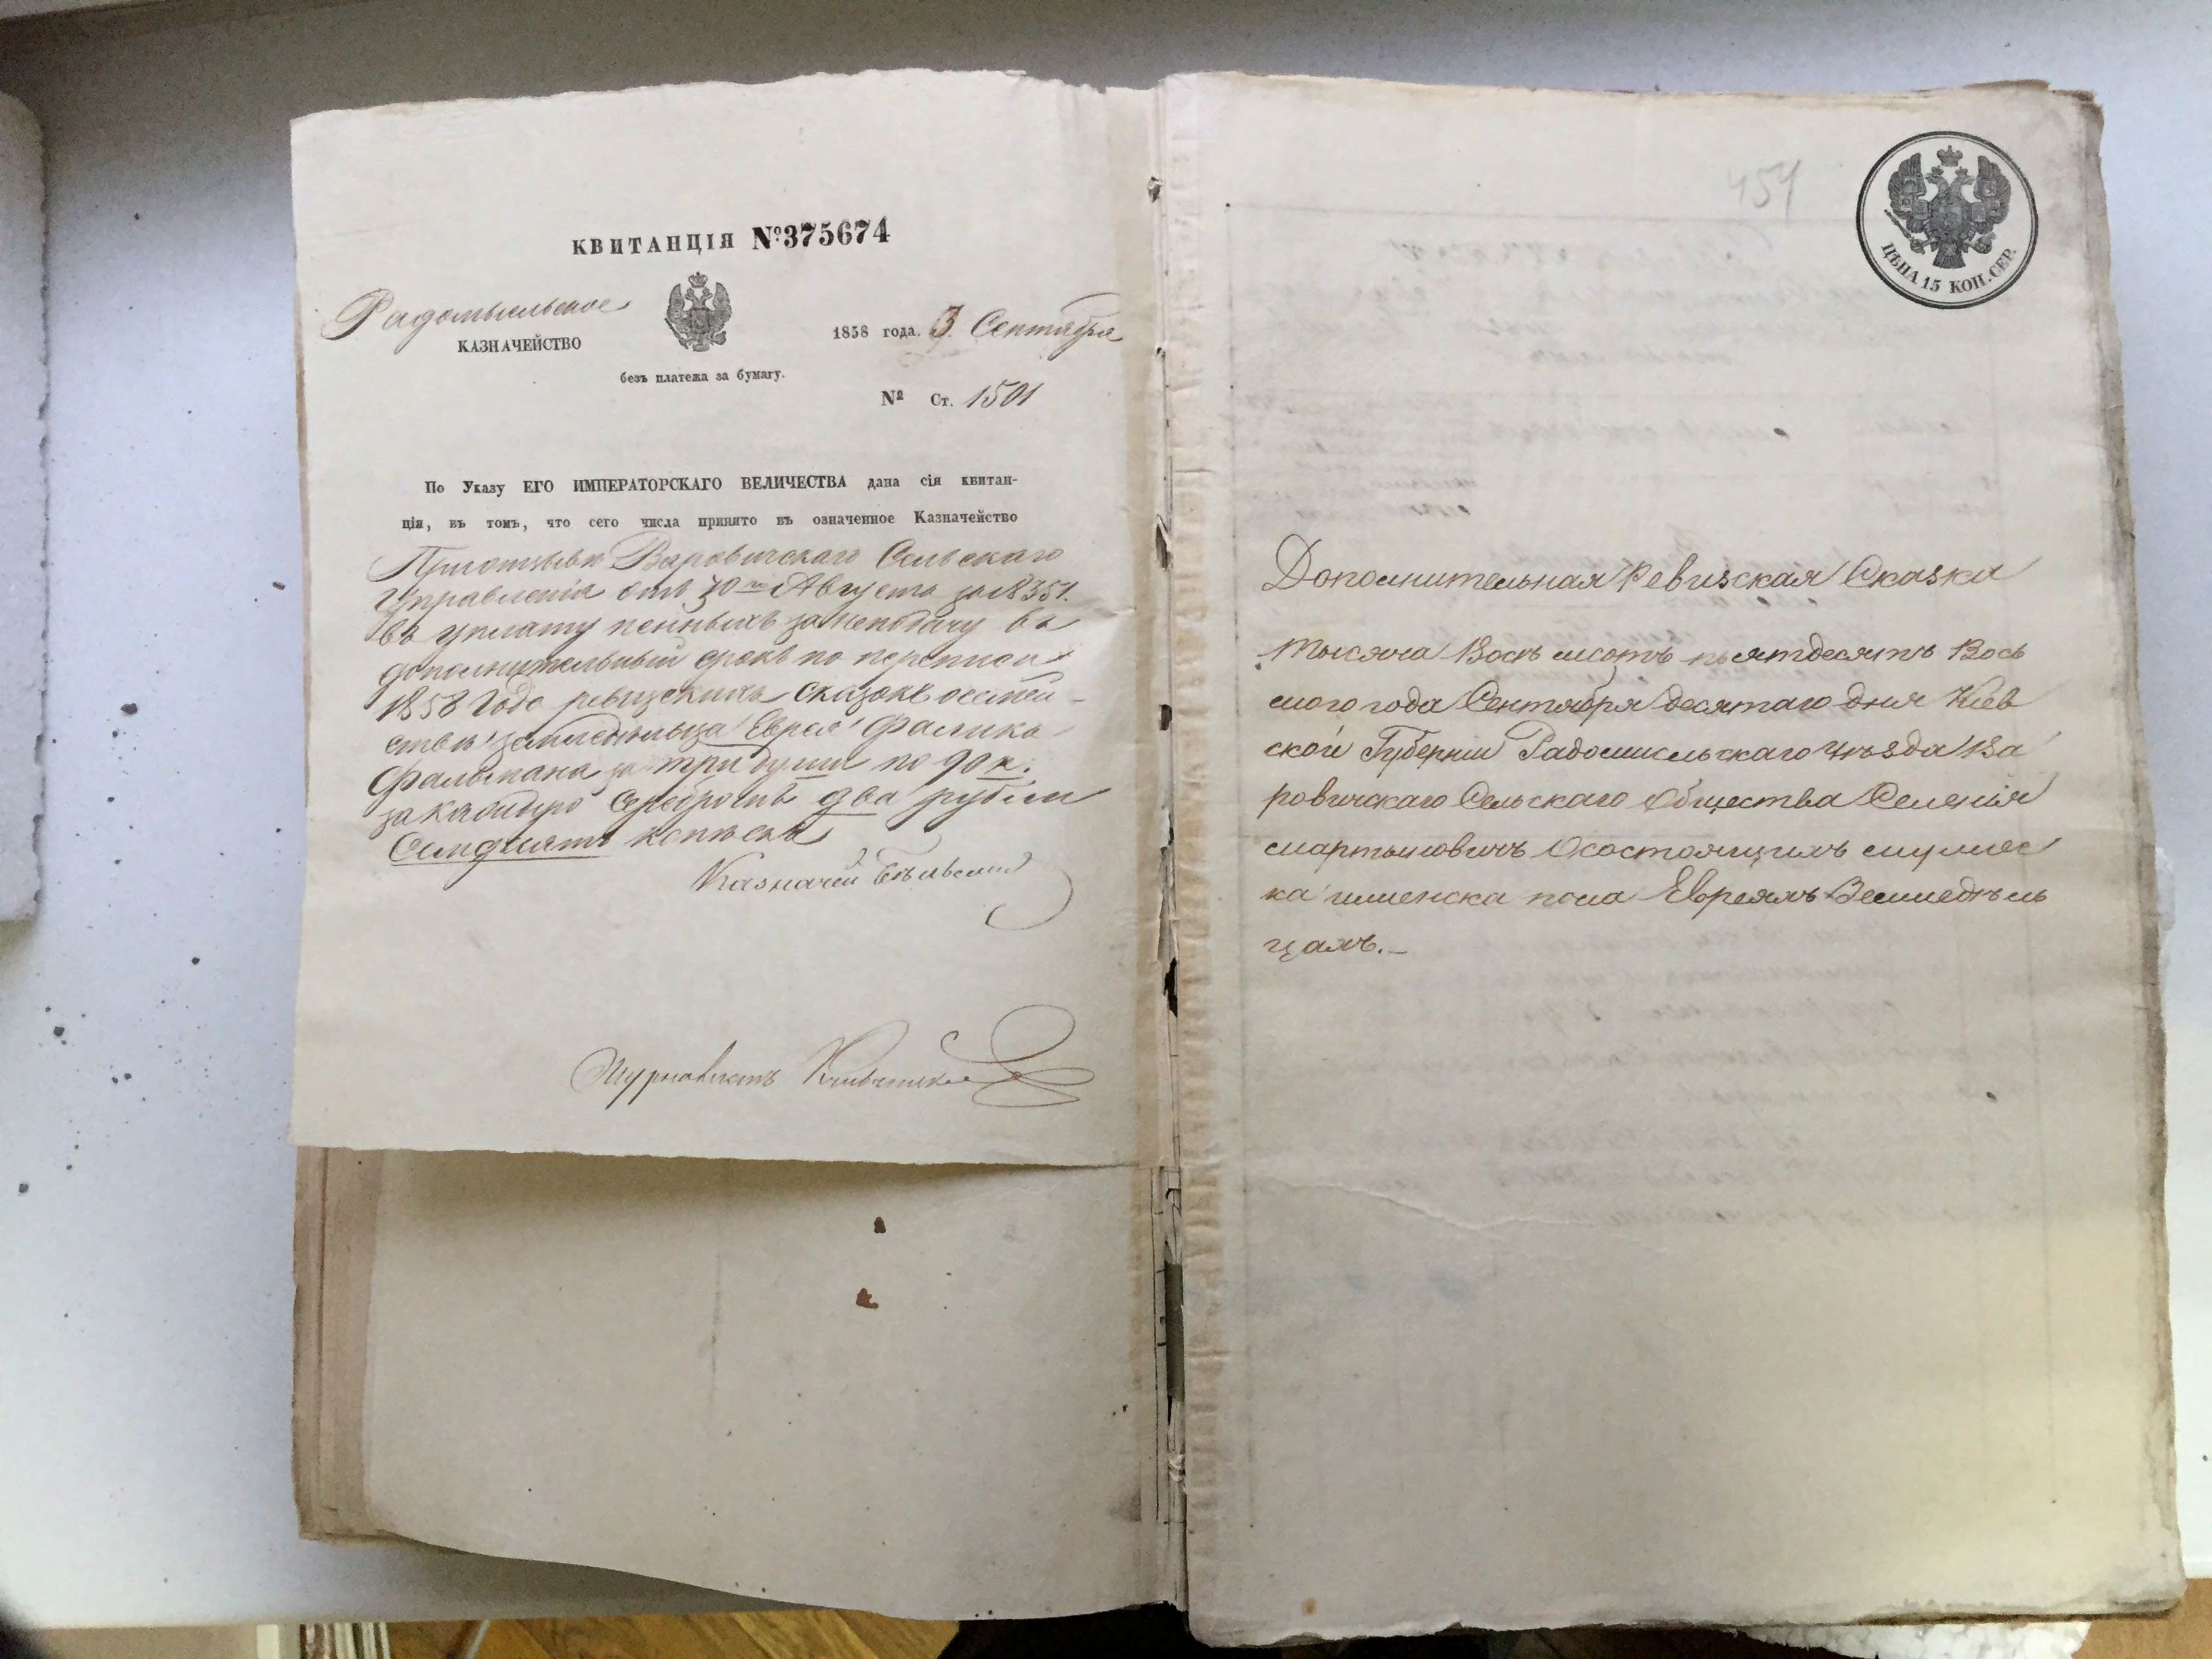 КВИТАНЦІЯ №375674
Радомысльское
КАЗНАЧЕЙСТВО
1858 года. 3 Сентября
безъ платежа за бумагу.
№ Ст. 1501
По Указу ЕГО ИМПЕРАТОРСКАГО ВЕЛИЧЕСТВА дана сія квитан-
ція, въ томъ, что сего числа принято въ означенное Казначейство
При отзывѣ Варовичскаго Сельскаго
Управленія отъ 30го Августа за №351.
въ уплату пенныхъ за неподачу въ
дополнительный срокъ по переписи
1858 Года ревизскихъ сказокъ о семей-
ствѣ земледѣльца Еврея Фалика
Фальмана за три души по 90 к.
за каждую Серебромъ два рубли
Семдѣсятъ копѣекъ
Казначей
Журналистъ
454
ЦѢНА 15 КОП. СЕР.
Дополнительная Ревизская Сказка
тысяча Восъмсотъ пьятдесятъ Вось
мого года Сентября десятаго дня Кіев
ской Губерніи Радомисльскаго уѣзда Ва
ровичскаго Сельскаго Общества Селенія
мартыновичъ О состоящихъ мужес
ка и женска пола Евреяхъ Земледѣль
цахъ.-